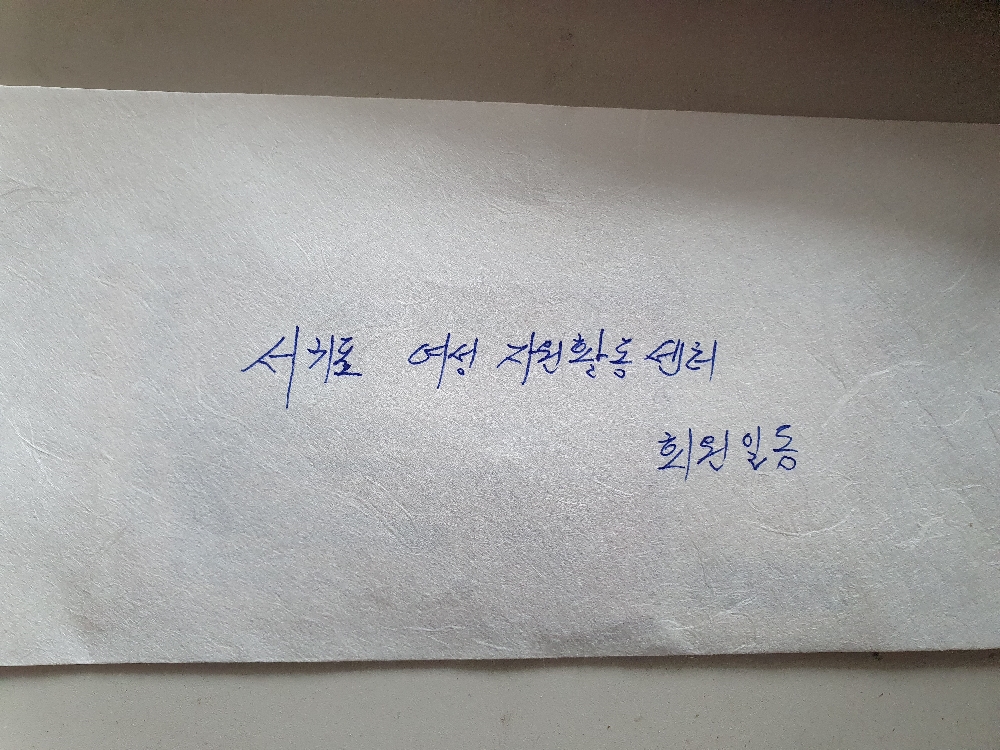 서귀포 여성 자원활동센터
회원일동